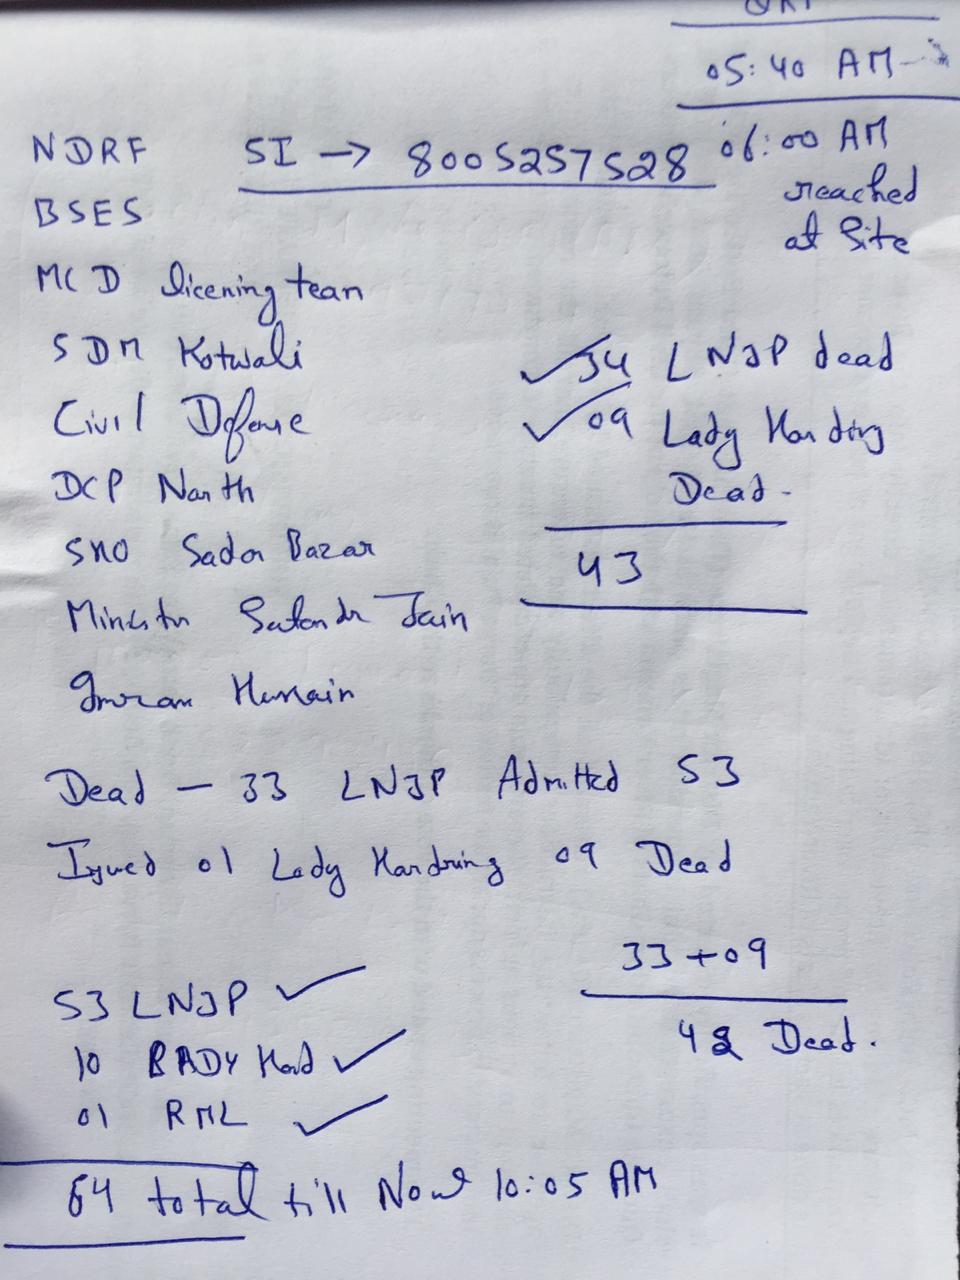 05:40 AM
NDRF SI → 8005257528 06:00 AM
reached
at Site
BSES
MCD licening team
SDM Kotwali
Civil Defense
DCP North
SHO Sadar Bazar
Minister Satendr Jain
Imran Hussain
34 LNJP dead
09 Lady Harding
Dead -
43
Dead - 33 LNJP Admitted 53
Injured 01 Lady Hardring 09 Dead
33 + 09
42 Dead.
53 LNJP
10 BADY Hard
01 RML
64 total till Now 10:05 AM